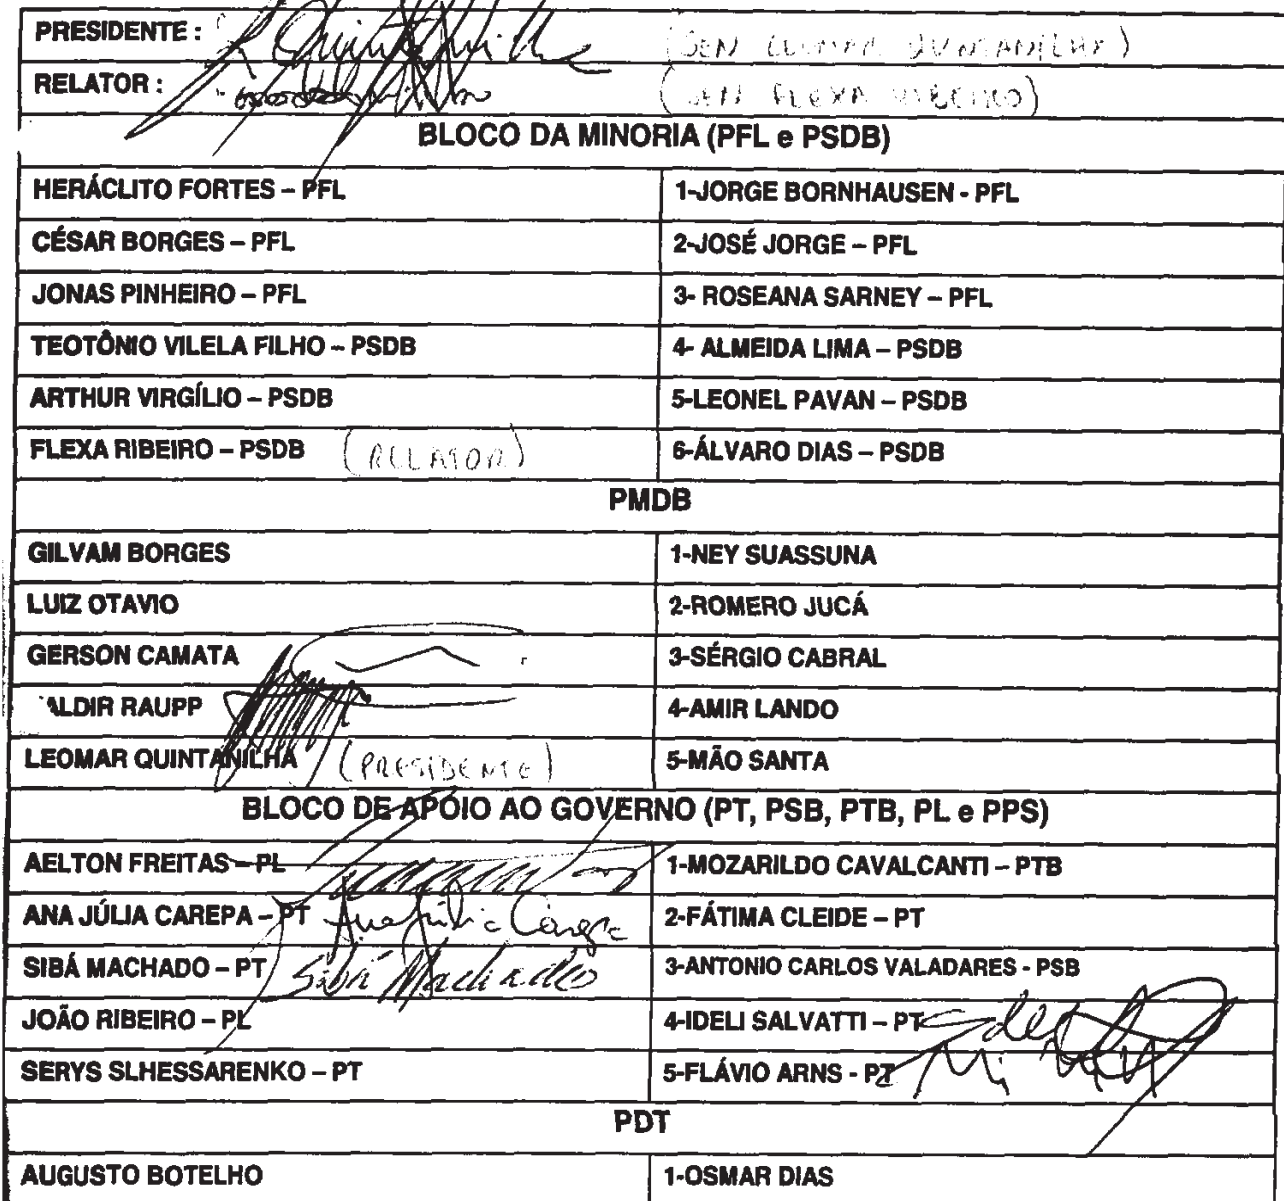 PRESIDENTE :
RELATOR :
BLOCO DA MINORIA (PFL e PSDB)
HERÁCLITO FORTES – PFL 1-JORGE BORNHAUSEN - PFL
CÉSAR BORGES – PFL 2-JOSÉ JORGE – PFL
JONAS PINHEIRO – PFL 3- ROSEANA SARNEY – PFL
TEOTÔNIO VILELA FILHO – PSDB 4- ALMEIDA LIMA – PSDB
ARTHUR VIRGÍLIO – PSDB 5-LEONEL PAVAN – PSDB
FLEXA RIBEIRO – PSDB (RELATOR) 6-ÁLVARO DIAS – PSDB
PMDB
GILVAM BORGES 1-NEY SUASSUNA
LUIZ OTAVIO 2-ROMERO JUCÁ
GERSON CAMATA 3-SÉRGIO CABRAL
ALDIR RAUPP 4-AMIR LANDO
LEOMAR QUINTANILHA (PRESIDENTE) 5-MÃO SANTA
BLOCO DE APOIO AO GOVERNO (PT, PSB, PTB, PL e PPS)
AELTON FREITAS – PL 1-MOZARILDO CAVALCANTI – PTB
ANA JÚLIA CAREPA – PT Ana Júlia Carepa 2-FÁTIMA CLEIDE – PT
SIBÁ MACHADO – PT Sibá Machado 3-ANTONIO CARLOS VALADARES - PSB
JOÃO RIBEIRO – PL 4-IDELI SALVATTI – PT
SERYS SLHESSARENKO – PT 5-FLÁVIO ARNS - PT
PDT
AUGUSTO BOTELHO 1-OSMAR DIAS